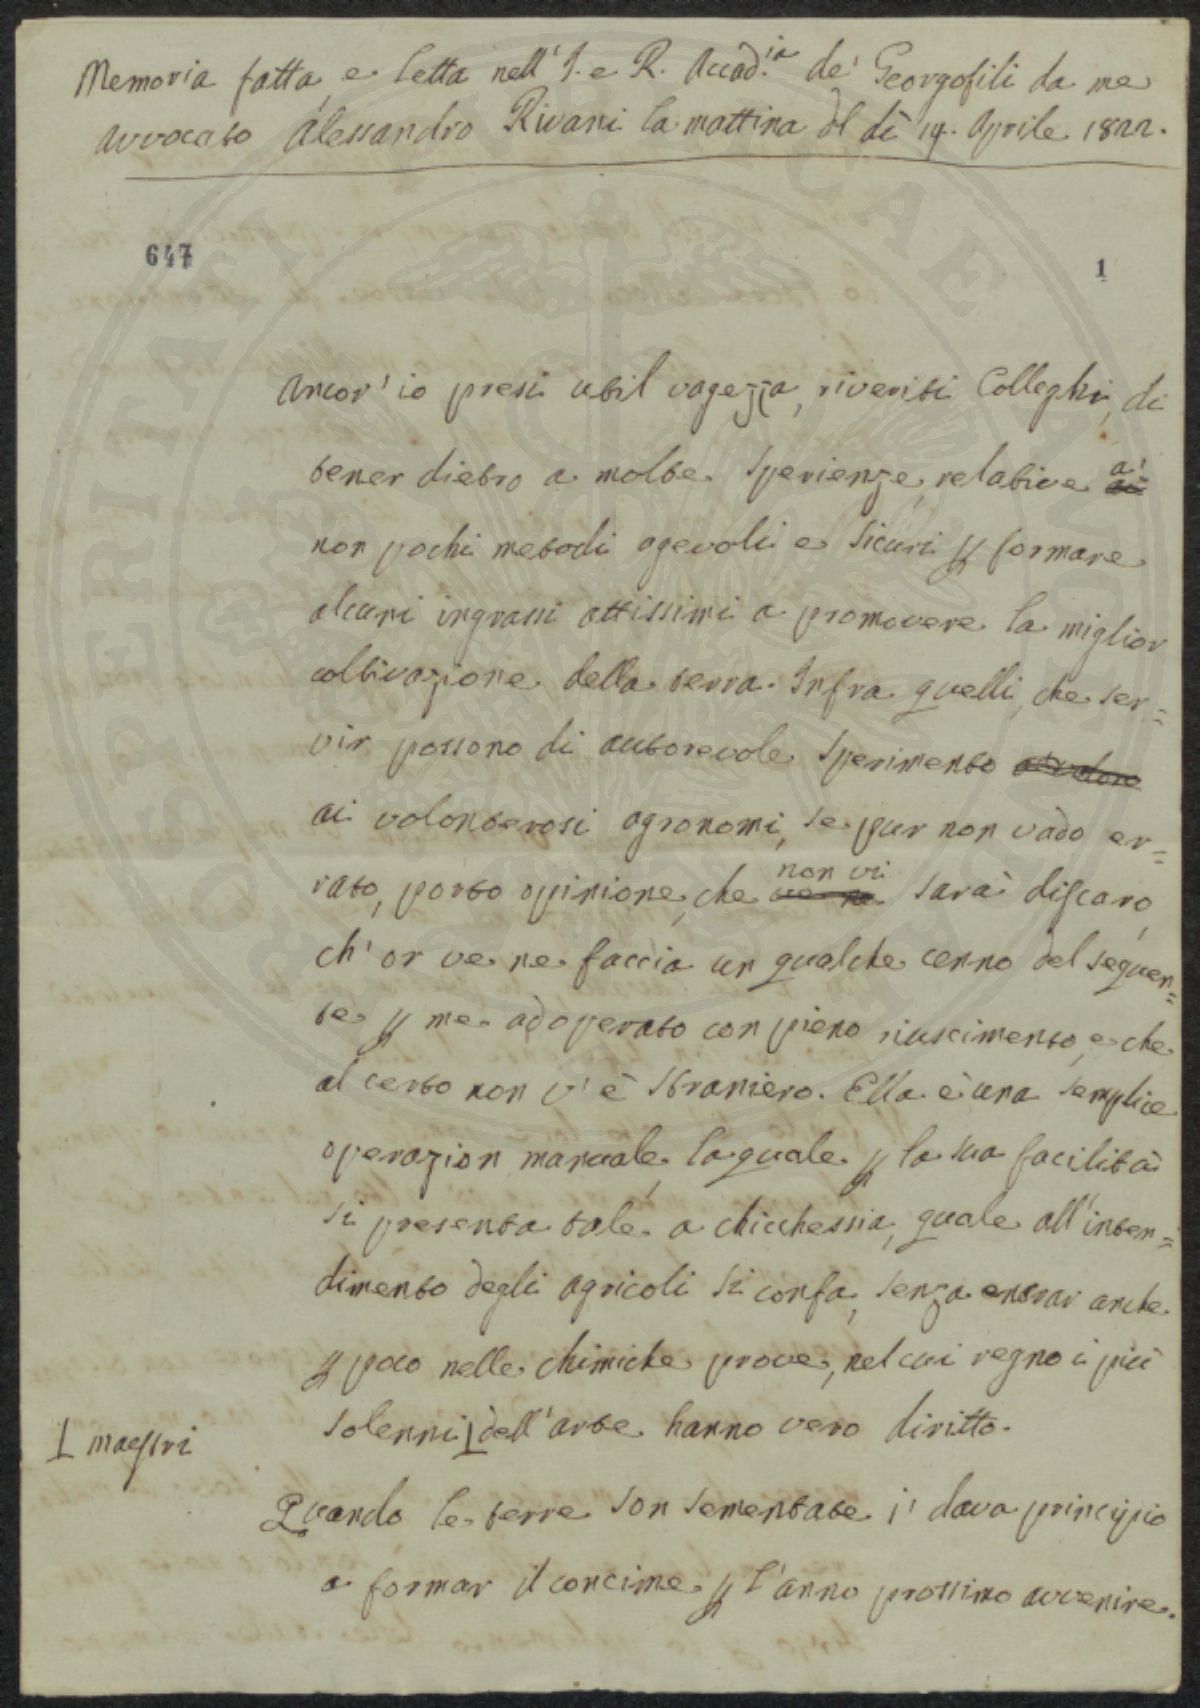 Memoria fatta, e letta nell'I. e R. Accad.ia de' Georgofili da me
Avvocato Alessandro Rivani la mattina del dì 14. Aprile 1822.
647
1
Ancor' io presi util vagezza, riveriti Colleghi, di
tener dietro a molte sperienze, relative a'
non pochi metodi agevoli e sicuri p formare
alcuni ingrassi attissimi a promovere la miglior
coltivazione della terra. Infra quelli, che ser=
vir possono di autorevole sperimento
ai volonterosi agronomi, se pur non vado er=
rato, porto opinione, che non vi sarà discaro,
ch' or ve ne faccia un qualche cenno del seguen=
te p me adoperato con pieno riuscimento, e che
al certo non v' è straniero. Ella è una semplice
operazion manuale, la quale p la sua facilità
si presenta tale a chicchessia, quale all'inten=
dimento degli agricoli si confa, senza entrar anche
p poco nelle chimiche prove, nel cui regno i più
solenni ⊥ dell'arte hanno vero diritto.
⊥ maestri
Quando le terre son sementate i' dava principio
a formar il concime p l'anno prossimo avvenire.